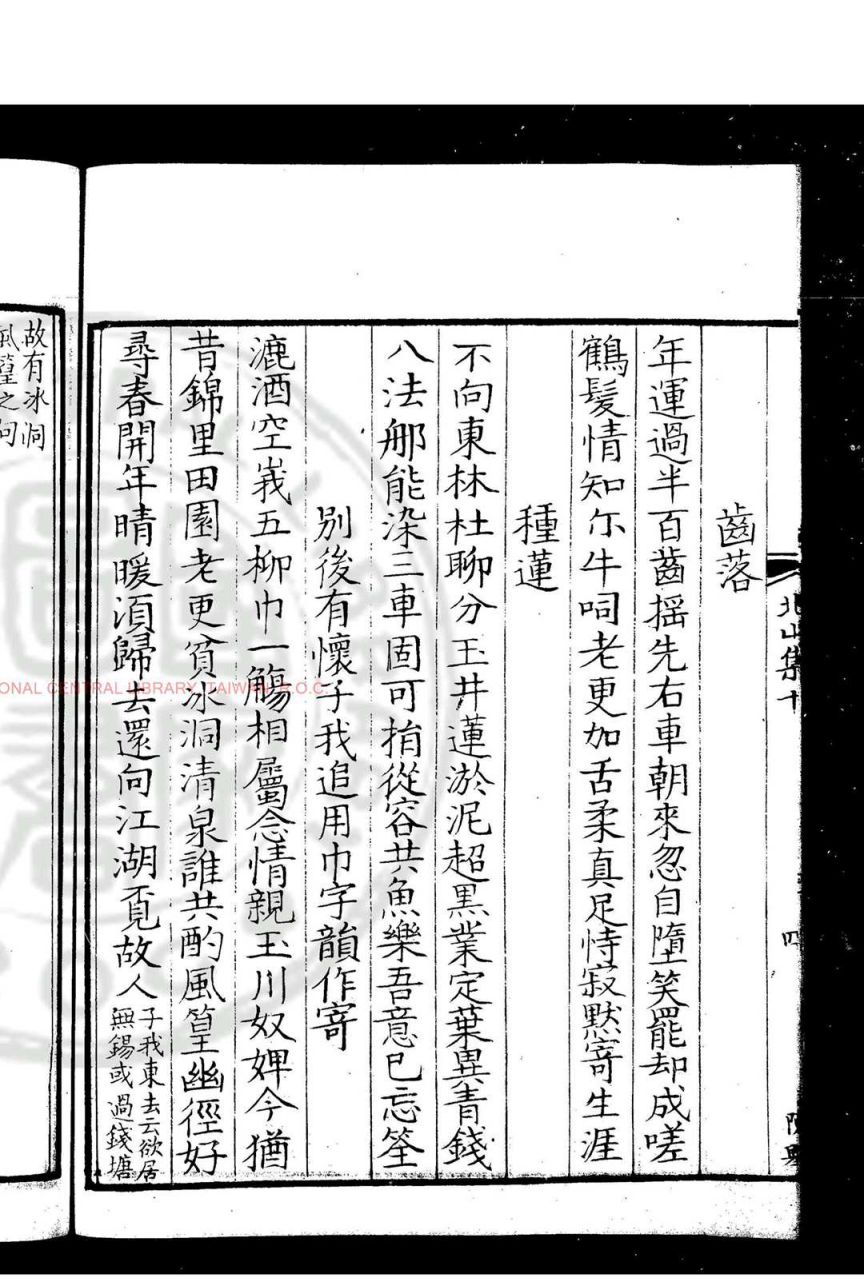 齒落
年運過半百齒揺先右車朝來忽自墮笑罷却成嗟
鶴髪情知尓牛呞老更加舌柔真足恃寂默寄生涯
種蓮
不向東林杜聊分玉井蓮淤泥超黒業定葉異青錢
八法那能染三車固可捎從容共魚樂吾意已忘筌
別後有懷子我追用巾字韻作寄
漉酒空峩五柳巾一觴相屬念情親玉川奴婢今猶
昔錦里田園老更貧冰洞清泉誰共酌風篁幽徑好
尋春開年晴暖湏歸去還向江湖覔故人
子我東去云欲居
無錫或過錢塘
故有冰洞
風篁之句
北山集十
四
ONAL CENTRAL LIBRARY, TAIWAN, R.O.C.